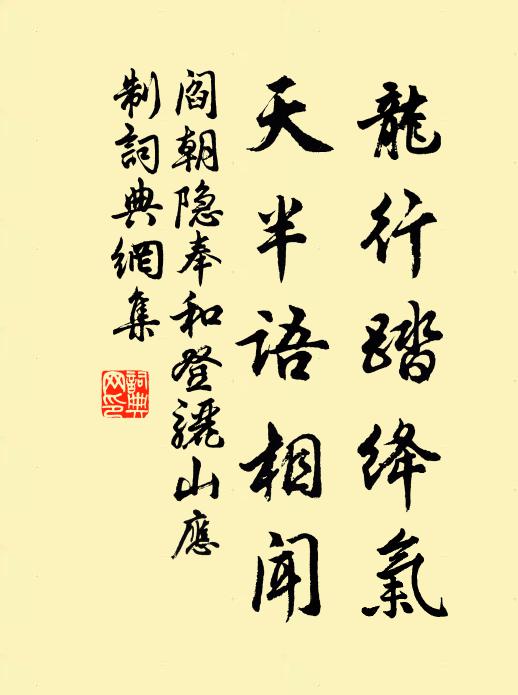 龍行踏绛氣
天半语相聞
阎朝隐奉和登驪山應
制詞典網集
詞典
网印